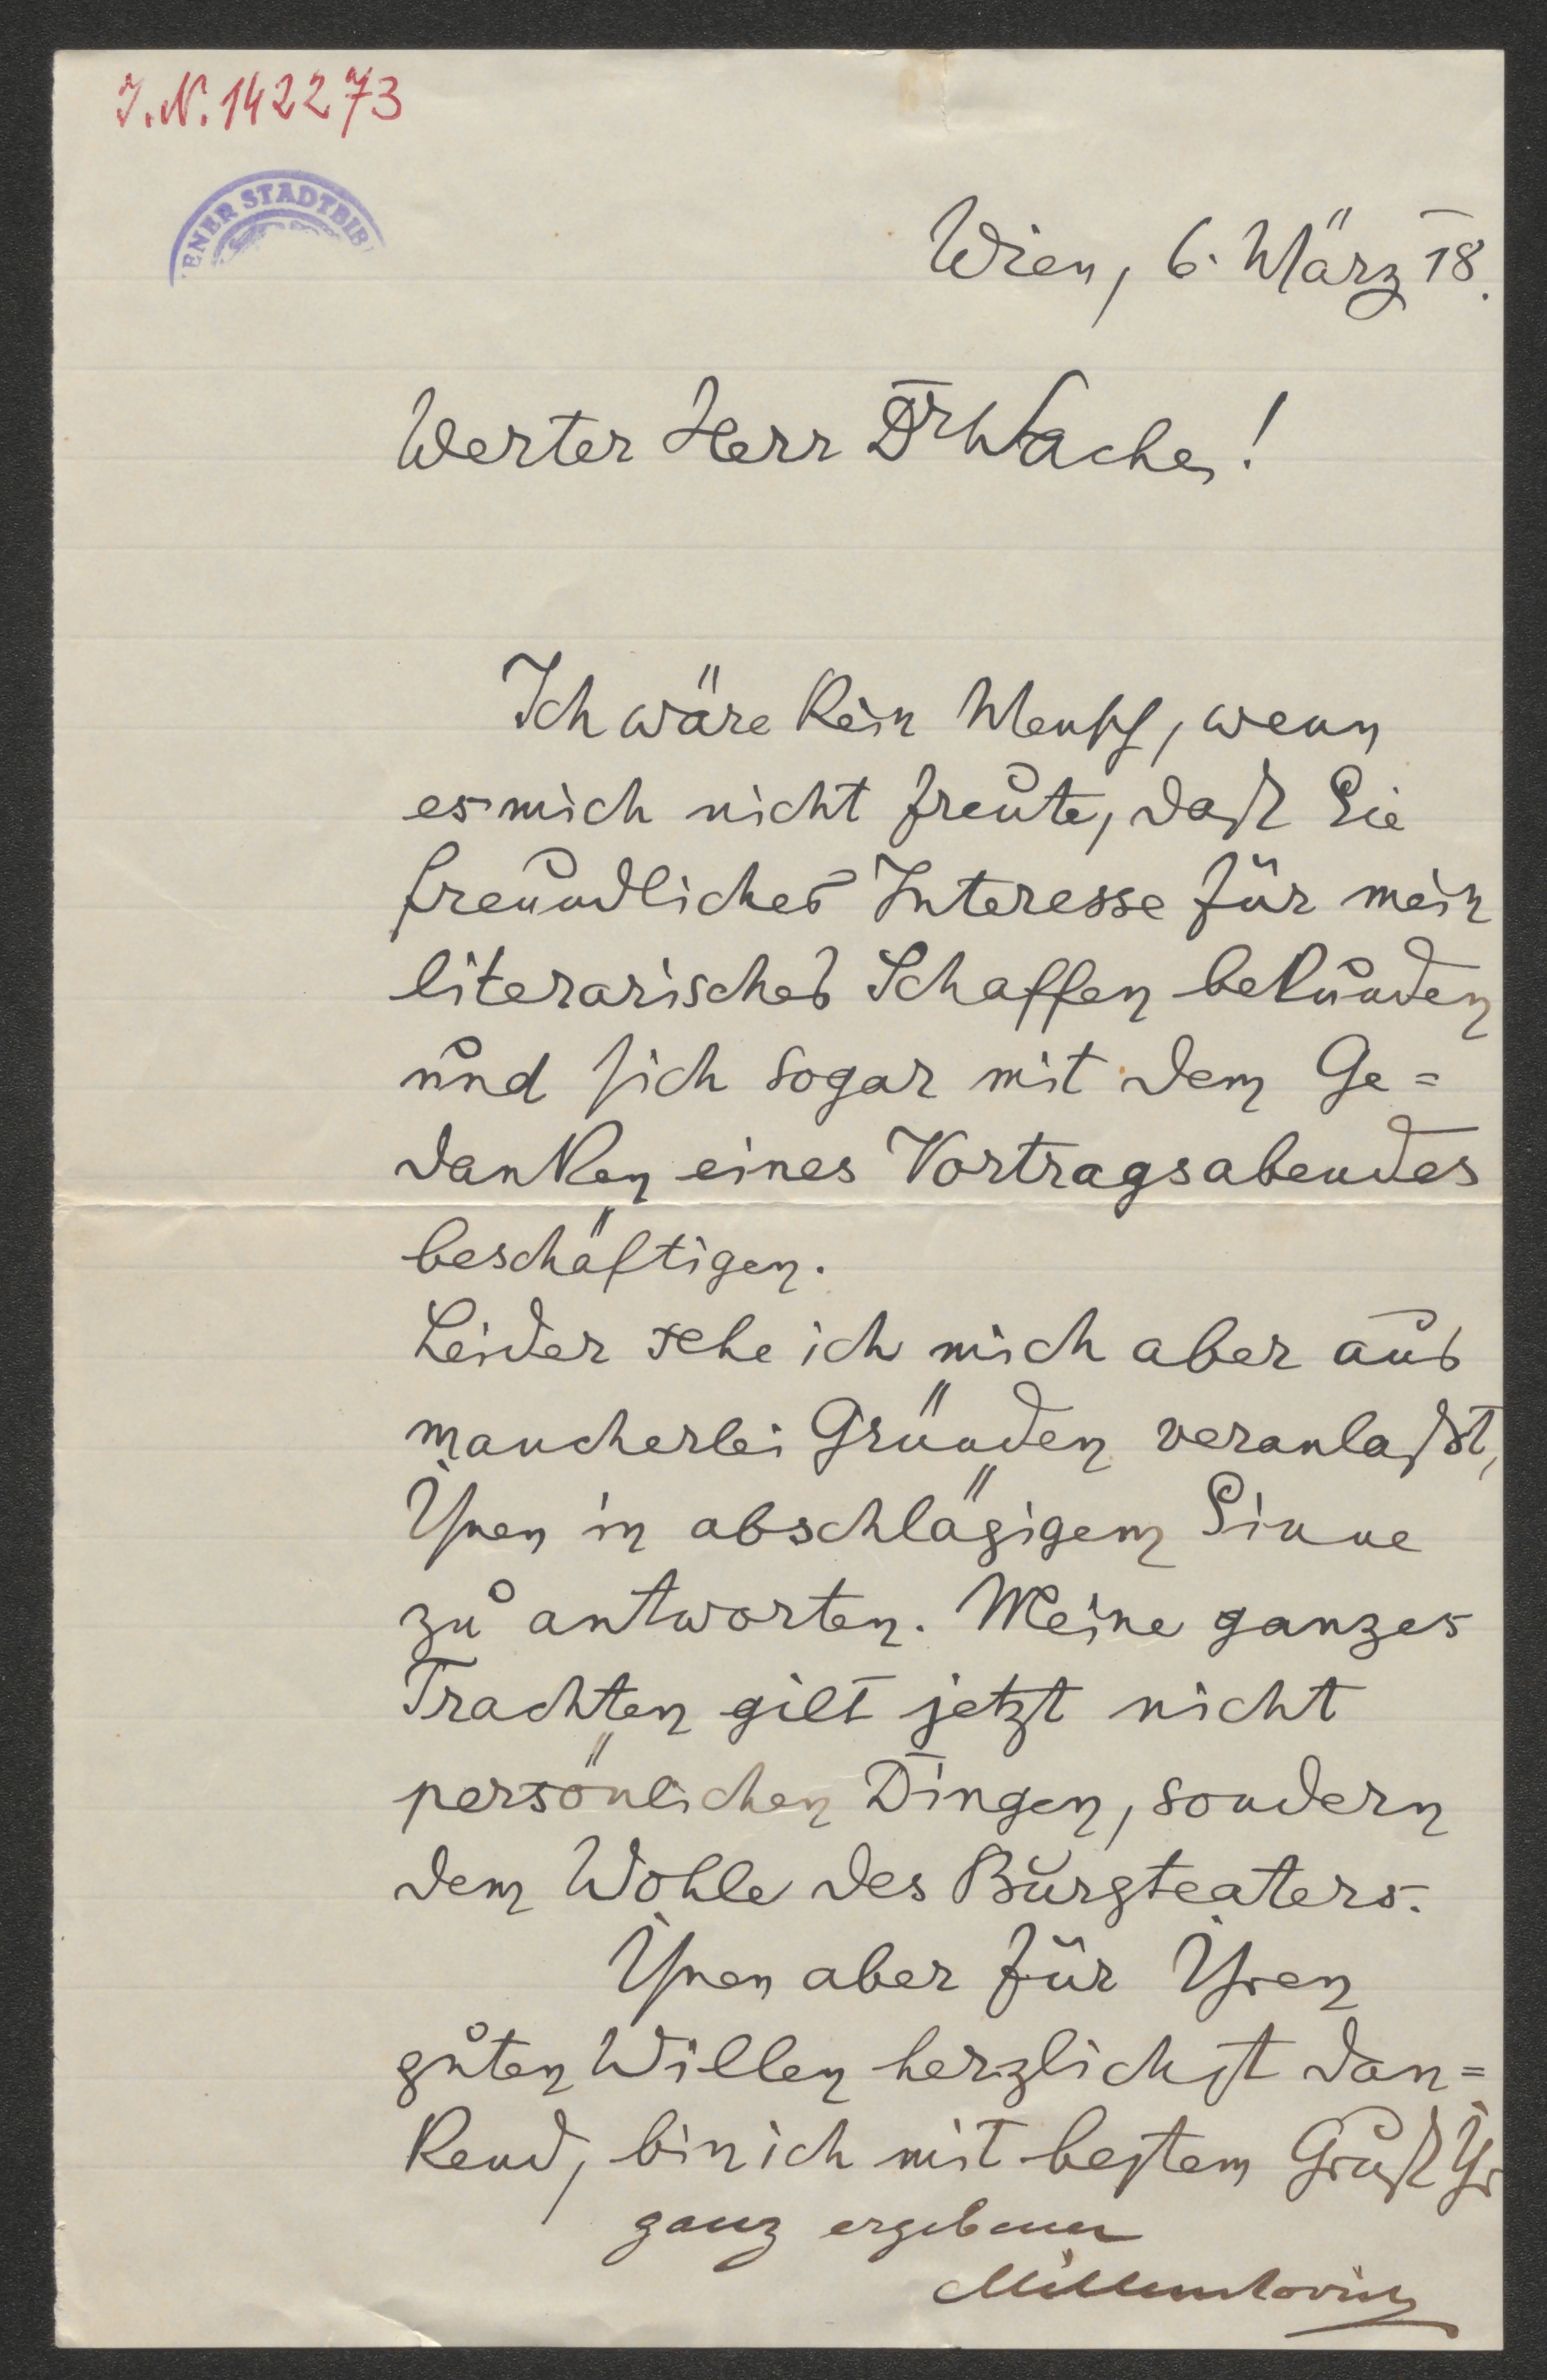 J.N. 142273
ENER STADTBIB
Wien, 6. März 18.
Werter Herr Dr Wache!
Ich wäre kein Mensch, wenn
es mich nicht freute, daß Sie
freundliches Interesse für mein
literarisches Schaffen bekunden
und sich sogar mit dem Ge=
danken eines Vortragsabendes
beschäftigen.
Leider sehe ich mich aber aus
mancherlei Gründen veranlaßt,
Ihnen in abschlägigem Sinne
zu antworten. Meine ganzes
Trachten gilt jetzt nicht
persönlichen Dingen, sondern
dem Wohle des Burgteaters.
Ihnen aber für Ihren
guten Willen herzlichst dan=
kend, bin ich mit bestem Gruß Ihr
ganz ergebener
Millenkovich